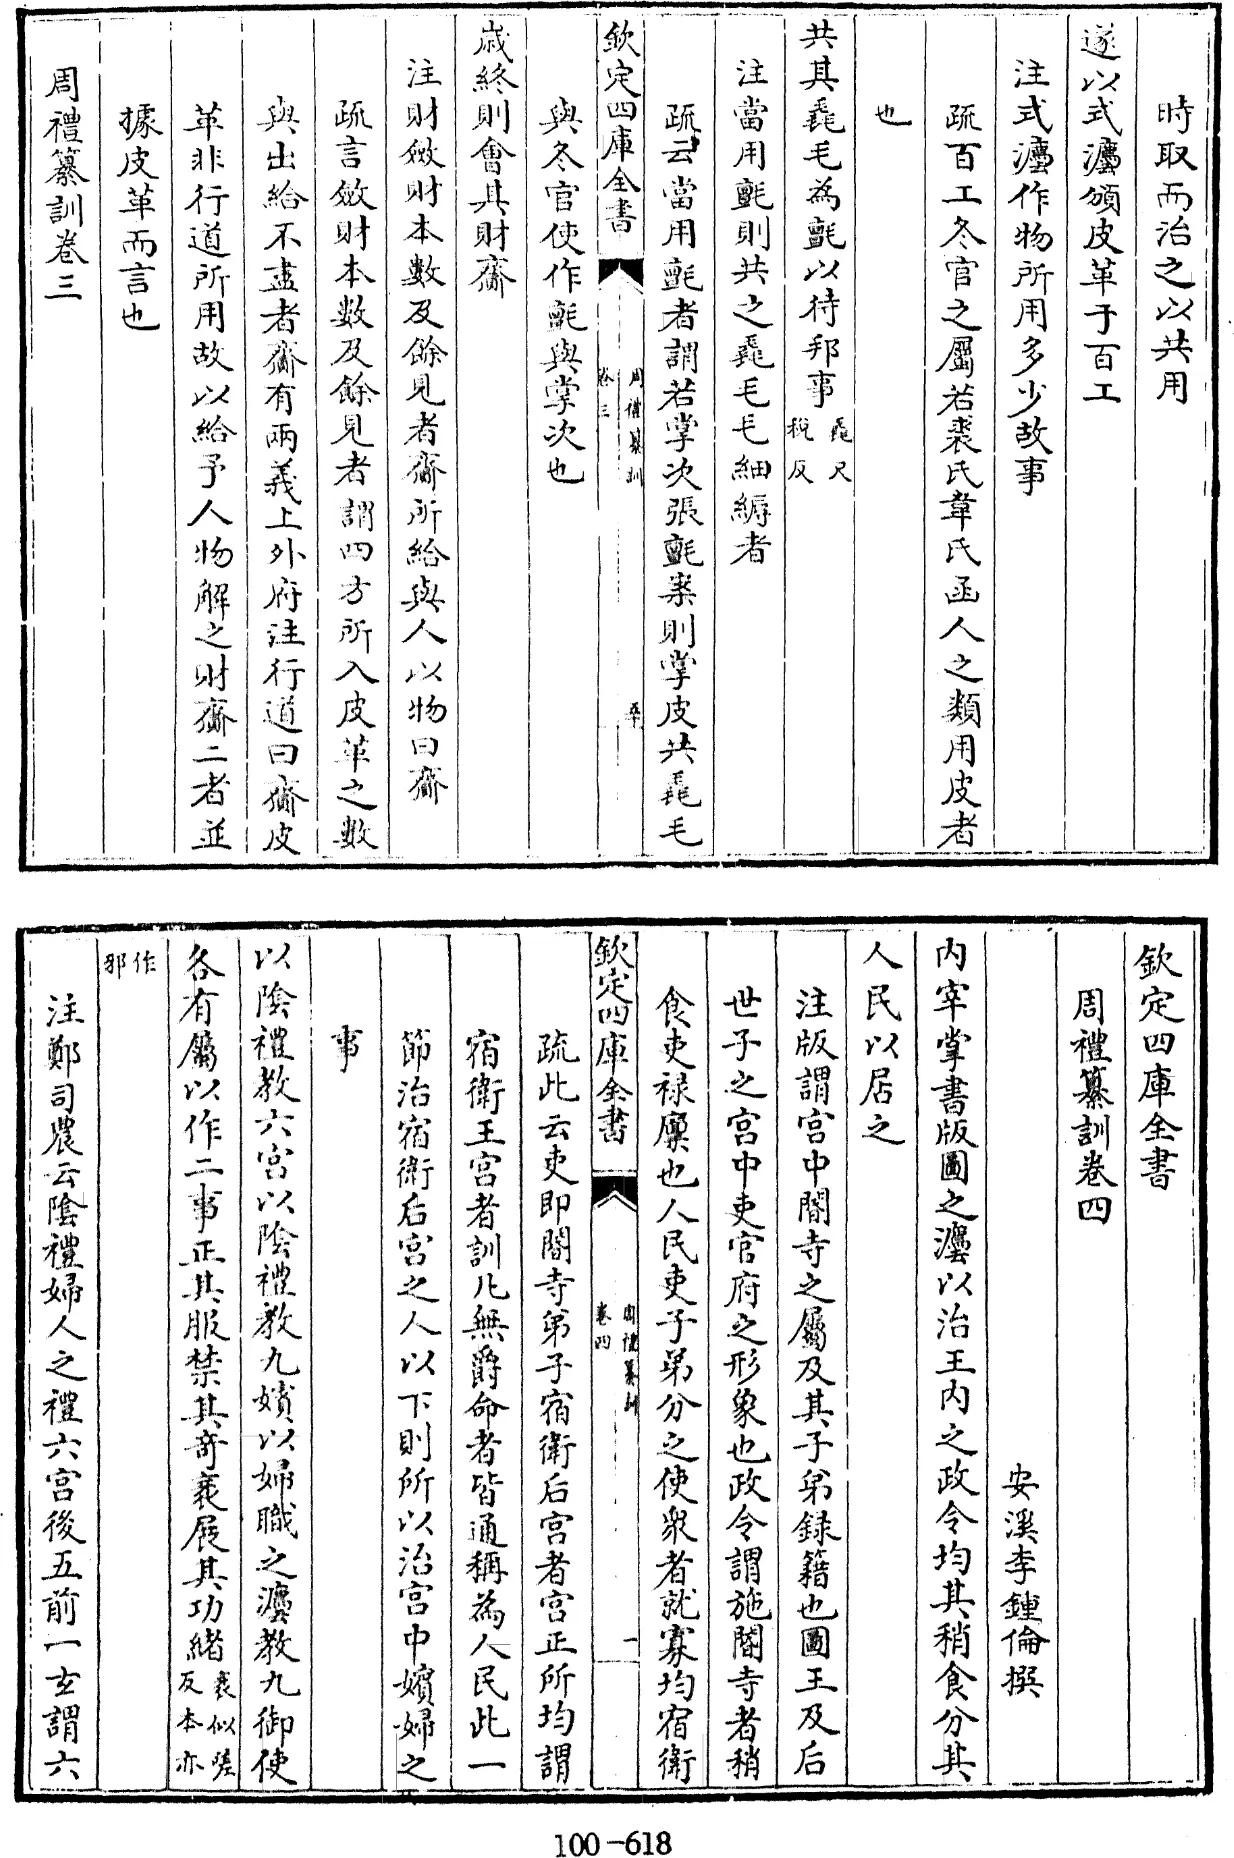 時取而治之以共用
遂以式灋頒皮革于百工
注式灋作物所用多少故事
疏百工冬官之屬若裘氏韋氏函人之類用皮者
也
共其毳毛為氈以待邦事毳尺
稅反
注當用氈則共之毳毛毛細縟者
疏云當用氈者謂若掌次張氈案則掌皮共毳毛
欽定四庫全書
周禮纂訓
卷三
與冬官使作氈與掌次也
歳終則會其財齎
注財斂財本數及餘見者齎所給與人以物曰齎
疏言斂財本數及餘見者謂四方所入皮革之數
與出給不盡者齎有兩義上外府注行道曰齎皮
革非行道所用故以給予人物解之財齎二者並
據皮革而言也
周禮纂訓卷三
欽定四庫全書
周禮纂訓卷四
安溪李鍾倫撰
内宰掌書版圖之灋以治王内之政令均其稍食分其
人民以居之
注版謂宫中閽寺之屬及其子弟録籍也圖王及后
世子之宫中吏官府之形象也政令謂施閽寺者稍
食吏禄廩也人民吏子弟分之使衆者就寡均宿衛
欽定四庫全書
周禮纂訓
卷四
一
疏此云吏即閽寺弟子宿衛后宫者宫正所均謂
宿衛王宫者訓凡無爵命者皆通稱為人民此一
節治宿衛后宫之人以下則所以治宫中嬪婦之
事
以陰禮教六宫以陰禮教九嬪以婦職之灋教九御使
各有屬以作二事正其服禁其奇衺展其功緒衺似嗟
反本亦
作
邪
注鄭司農云陰禮婦人之禮六宫後五前一玄謂六
100-618